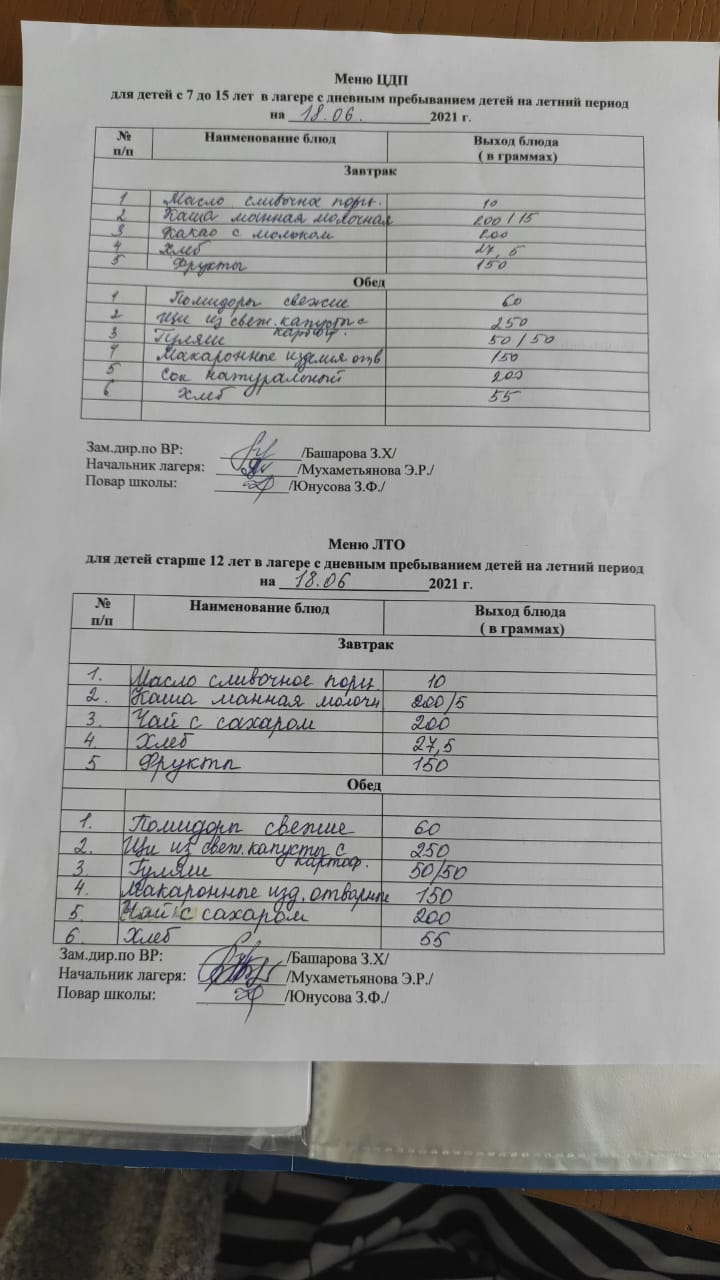 Меню ЦДП
для детей с 7 до 15 лет в лагере с дневным пребыванием детей на летний период
на 18.06. 2021 г.
№ п/п Наименование блюд Выход блюда ( в граммах)
Завтрак
1 Масло сливочное порц. 10
2 Каша манная молочная 200/15
3 Какао с молоком 200
4 Хлеб 27,5
5 Фрукты 150
Обед
1 Помидоры свежие 60
2 Щи из свеж. капусты с картоф. 250
3 Гуляш 50/50
4 Макаронные изделия отв 150
5 Сок натуральный 200
6 Хлеб 55
Зам.дир.по ВР: /Башарова З.Х/
Начальник лагеря: /Мухаметьянова Э.Р./
Повар школы: /Юнусова З.Ф./
Меню ЛТО
для детей старше 12 лет в лагере с дневным пребыванием детей на летний период
на 18.06 2021 г.
№ п/п Наименование блюд Выход блюда ( в граммах)
Завтрак
1. Масло сливочное порц. 10
2. Каша манная молочн 200/5
3. Чай с сахаром 200
4. Хлеб 27,5
5 Фрукты 150
Обед
1. Помидоры свежие 60
2. Щи из свеж. капусты с картоф. 250
3. Гуляш 50/50
4. Макаронные изд. отварные 150
5. Чай с сахаром 200
6. Хлеб 55
Зам.дир.по ВР: /Башарова З.Х/
Начальник лагеря: /Мухаметьянова Э.Р./
Повар школы: /Юнусова З.Ф./